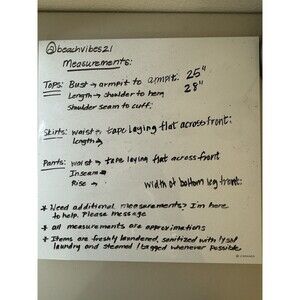 @beachvibes21
Measurements:
Tops: Bust → armpit to armpit. 25"
Length → shoulder to hem 28"
Shoulder seam to cuff:
Skirts: waist → tape laying flat across front:
length →
Pants: waist → tape laying flat across front
Inseam →
Rise → width of bottom leg front:
* Need additional measurements? I'm here
to help. Please message
* all measurements are approximations
* Items are freshly laundered, sanitized with lysol
laundry and steamed / bagged whenever possible